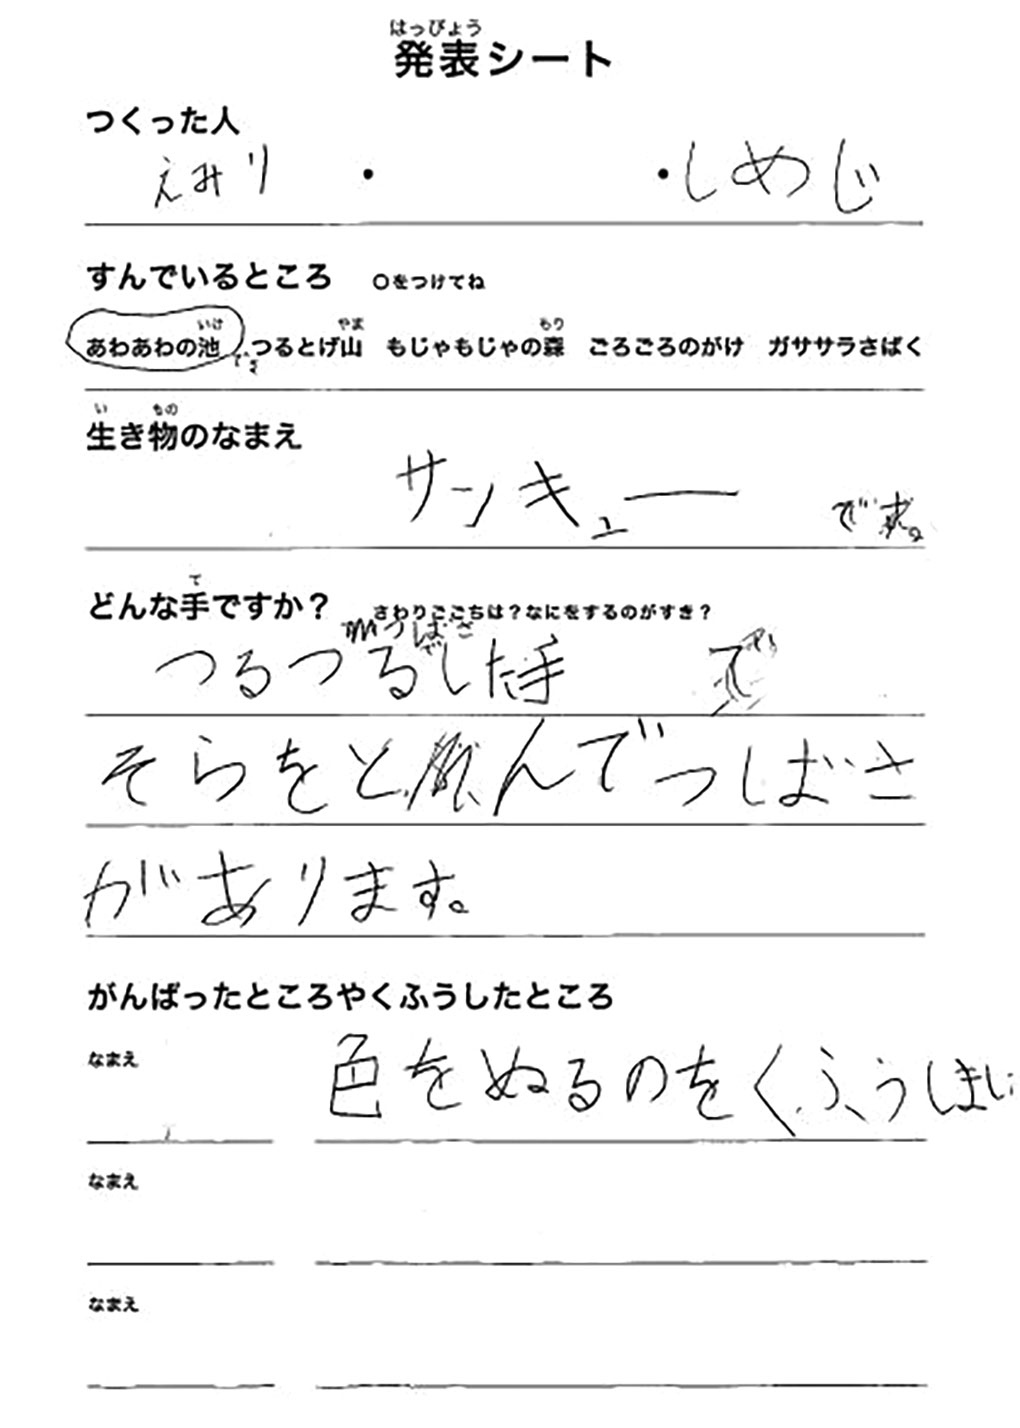 はっぴょう
発表シート
つくった人
えみり ・ ・しめじ
すんでいるところ ○をつけてね
いけ やま もり
あわあわの池 つるとげ山 もじゃもじゃの森 ごろごろのがけ ガササラさばく
でき
い もの
生き物のなまえ
サンキュー です。
て
どんな手ですか? さわりごこちは?なにをするのがすき?
つばさ
つるつるした手 で
そらをとんでつばさ
があります。
がんばったところやくふうしたところ
なまえ 色をぬるのをくふうしまし
なまえ
なまえ